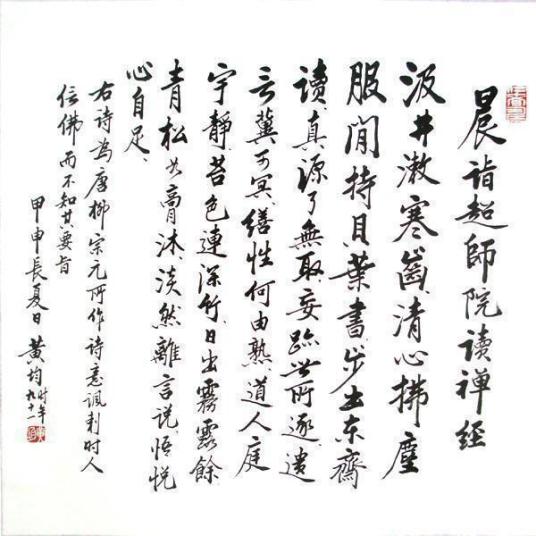 晨詣超師院读禅经
汲井漱寒齒清心拂塵
服閒持貝葉書步出东齋
讀真源了無取妄跡世所逐遗
言冀可冥繕性何由熟道人庭
宇靜苔色連深竹日出霧露餘
青松如膏沐淡然離言说悟悦
心自足
右诗為唐柳宗元所作诗意讽刺时人
信佛而不知其要旨
甲申長夏日黄均时年九十一